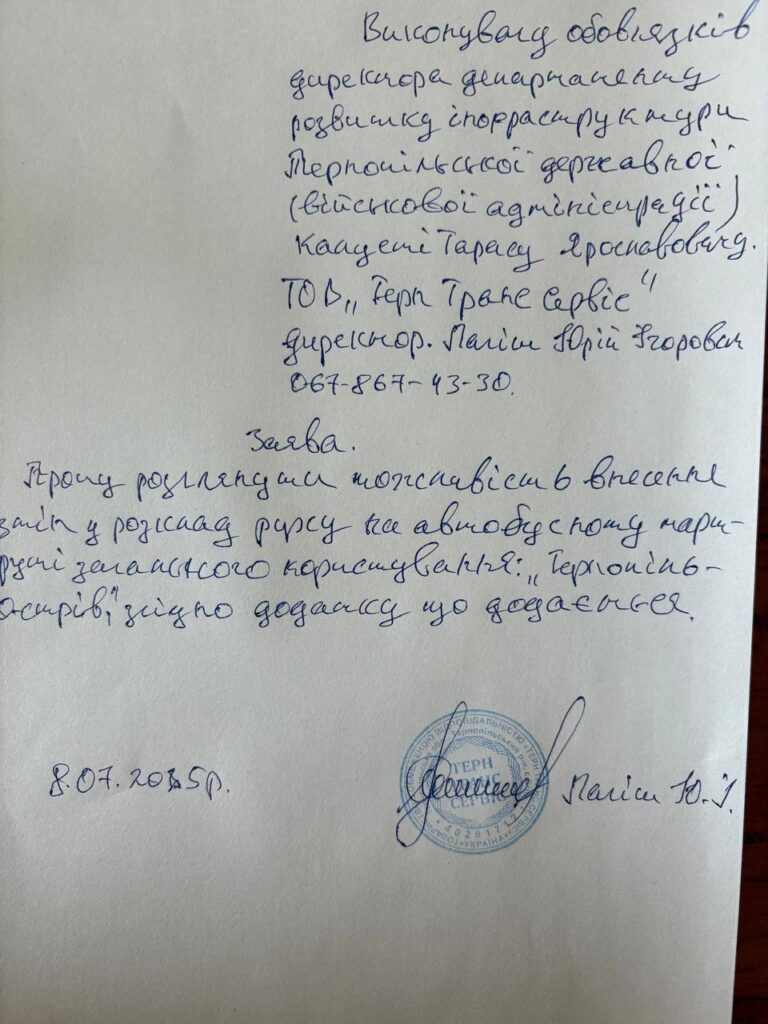 Виконувачу обов'язків
директора департаменту
розвитку інфраструктури
Тернопільської державної
(військової адміністрації)
Тарасу Ярославовичу.
ТОВ „Терн Транс Сервіс"
директор. Паліш Юрій Ігорович
067-867-43-30.
Заява.
Прошу розглянути можливість внесення
змін у розклад руху на автобусному марш-
руті загального користування: „Тернопіль-
Острів", згідно додатку що додається.
8.07.2025р.
ТЕРН
ТРАНС
СЕРВІС
УКРАЇНА
Паліш Ю.І.